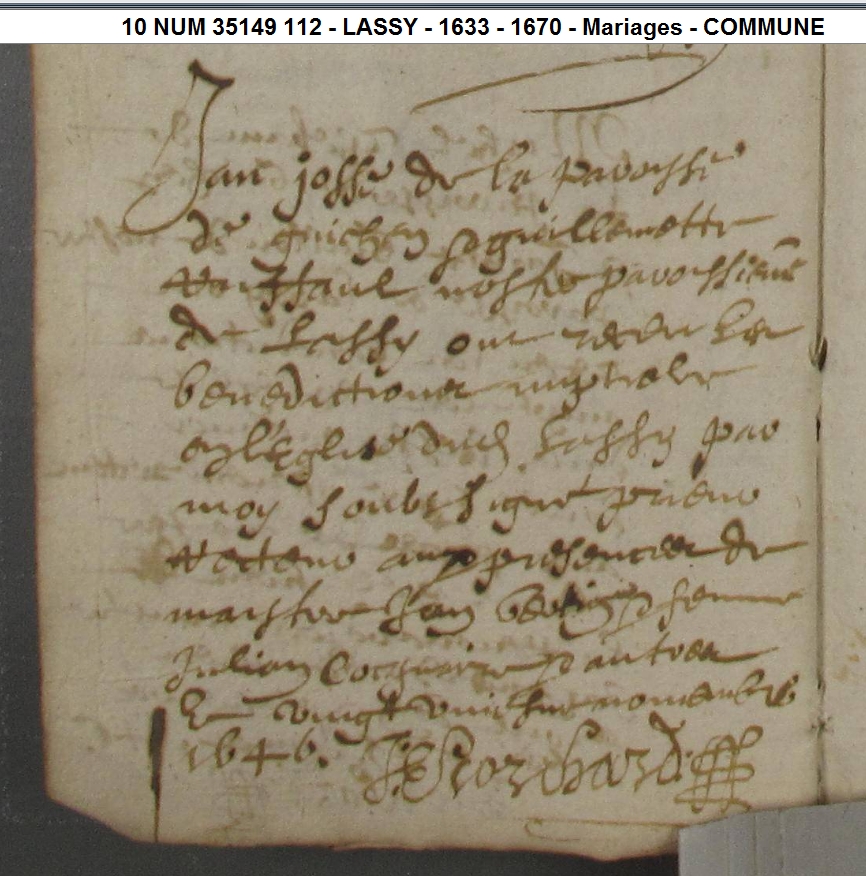 10 NUM 35149 112 - LASSY - 1633 - 1670 - Mariages - COMMUNE
Jan josse de la paroisse
de guichen & guillemette
nostre paroissienne
de Lassy ont receu les
benedictions nuptiale
en l'eglise dud Lassy par
moy soubs signé prieur
recteur aux presences de
maistre Jan
Julian & autres
le vingt novembre
1646.